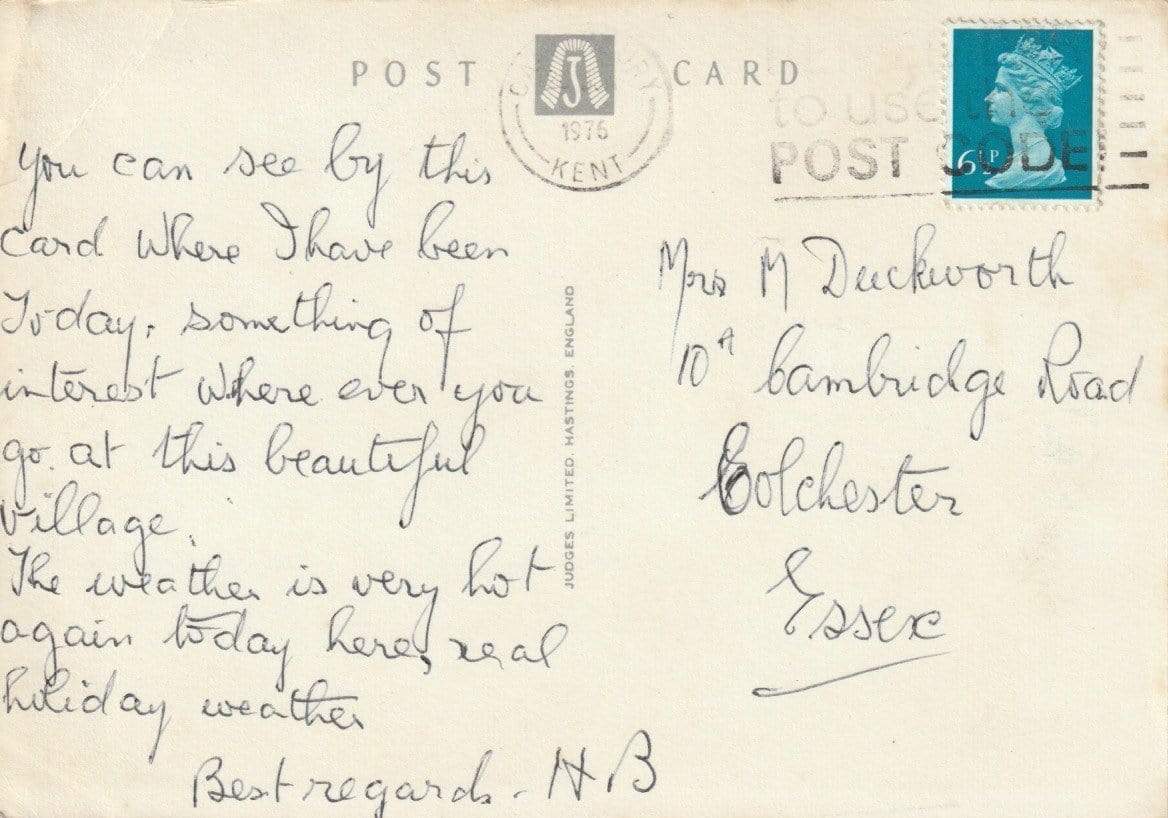 POST CARD
J
1976
KENT
to use the
POST CODE
6½P
You can see by this
card where I have been
Today. something of
interest where ever you
go. at this beautiful
village.
The weather is very hot
again today here, real
holiday weather
Best regards. H B
JUDGES LIMITED. HASTINGS. ENGLAND
Mrs M Duckworth
10A Cambridge Road
Colchester
Essex